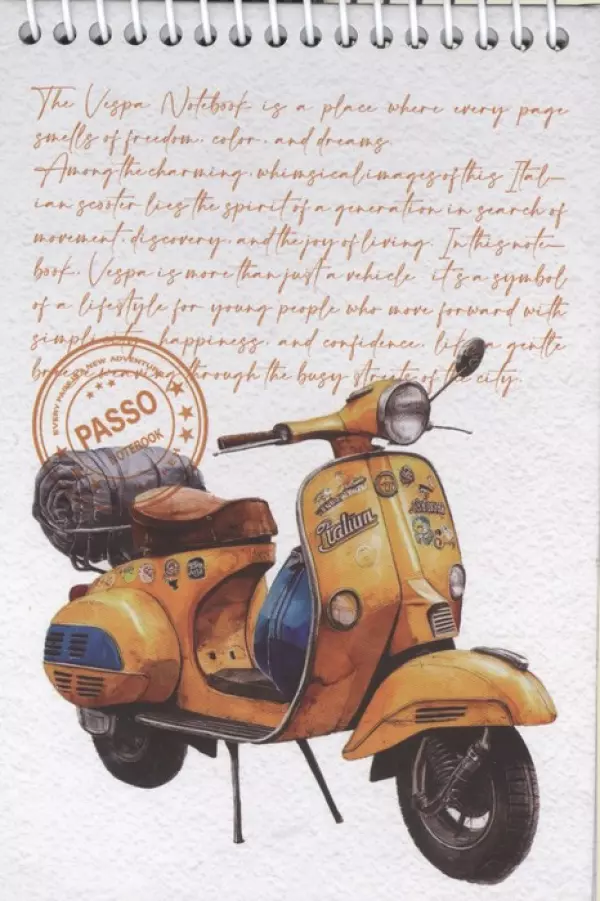 The Vespa Notebook is a place where every page
smells of freedom, color, and dreams.
Among the charming, whimsical images of this Ital-
ian scooter lies the spirit of a generation in search of
movement, discovery, and the joy of living. In this note-
book, Vespa is more than just a vehicle it's a symbol
of a lifestyle for young people who move forward with
simplicity, happiness, and confidence, like a gentle
through the busy streets of the city.
EVERY PAGE IS A NEW ADVENTURE
PASSO
NOTEBOOK
Italian